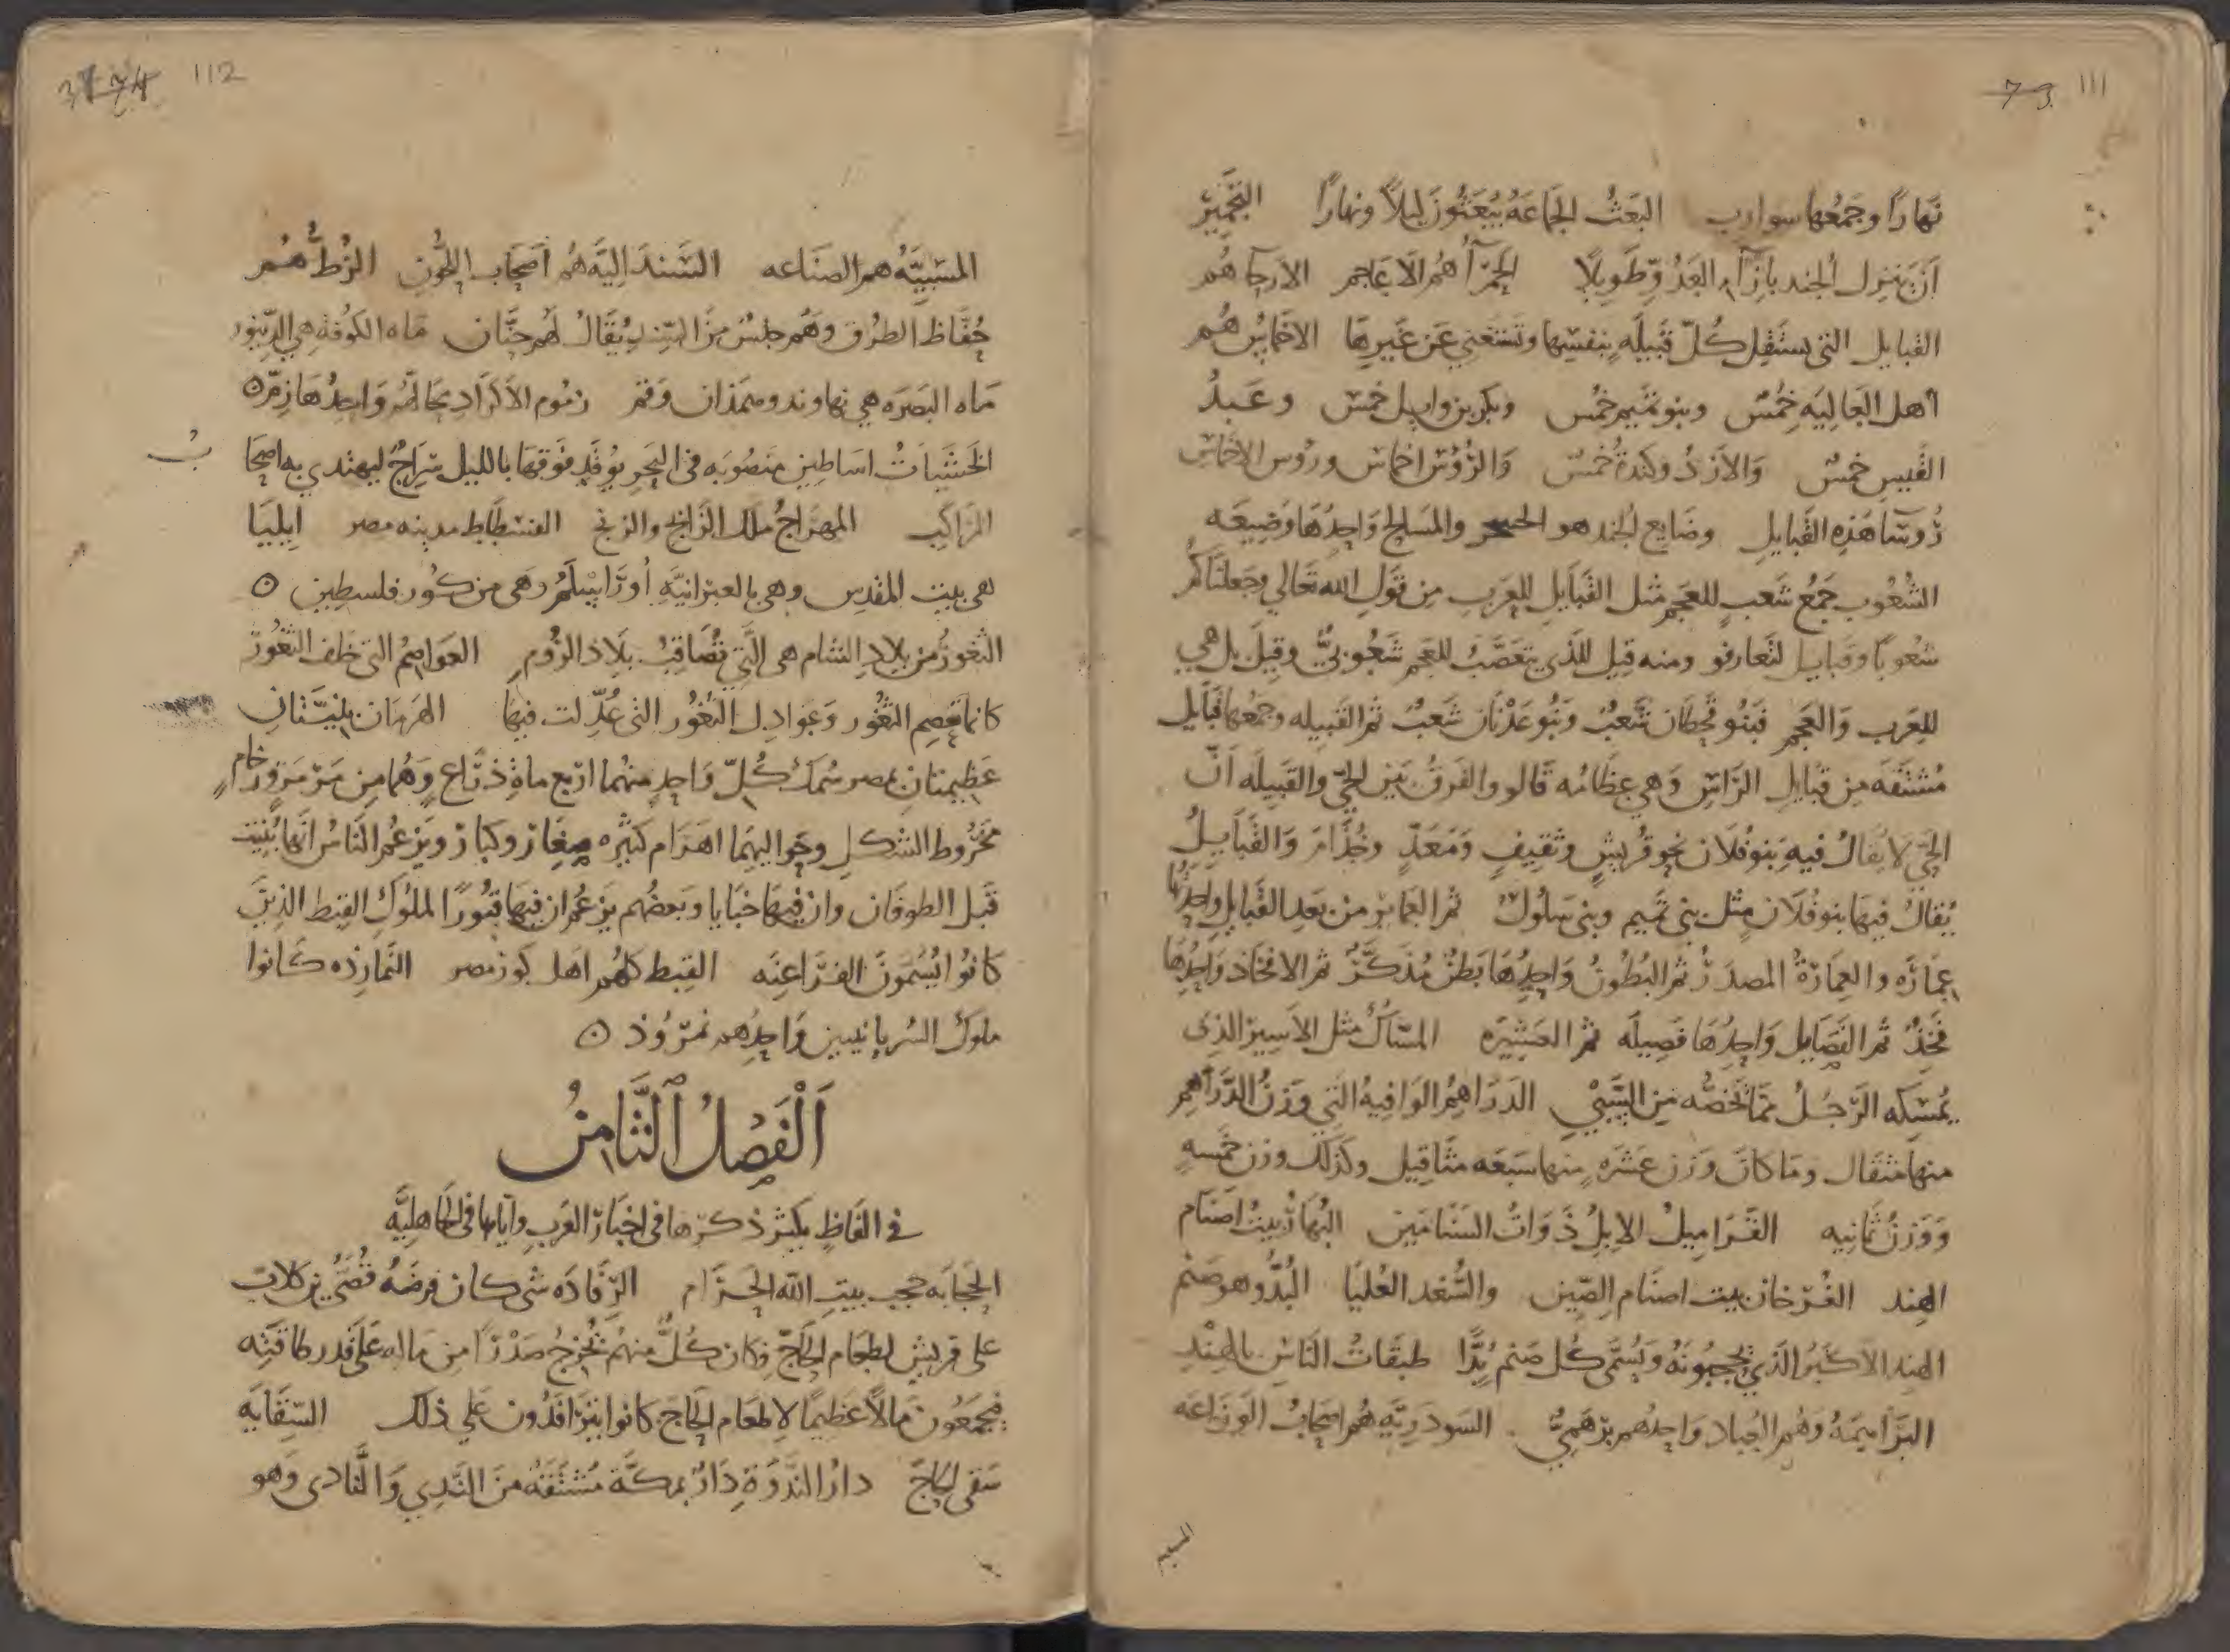 111
73
نَهارًا وجَمْعُها سوارب البَعثُ الجَمَاعَةُ يُبْعَثُونَ لَيلاً ونهارًا التجميرُ
اَن يَنزل الجند بازآء العَدُوّ طَوِيلًا الحَمْرَآءُ هُم الاَعَاجم الارحآ هُم
القبايل التى يستقلّ كُلّ قَبيلَه بنفسِها وتَستَغني عَن غَيرِها الاخماسُ هُم
اهل العَاليَه خُمسٌ وبنو تميم خُمسٌ وبكر بن وايل خمسٌ وعَبدُ
القَيس خمسٌ وَالاَزدُ وكندةُ خُمسٌ وَالرُؤسُ اخماسٌ ورُوس الاخماس
رُوَسَآ هَذِه القَبايل وضَايع الجند هو والمسالح وَاحِدُهَا وَضِيعَه
الشُعُوب جَمعُ شَعبٍ للعَجم مثل القَبَايل للعَرب مِن قَولِ الله تَعالي وجَعلنَاكُم
شعُوبًا وقبايل لتَعارفو ومنه قِيل للذَي يتعَصّبُ للعَجم شَعُوبيٌّ وقيلَ بل هي
للعَرب وَالعَجم فَبَنُو قَحطَان شَعبٌ وَبَنُو عَدنَان شَعبٌ ثم القَبِيله وجمعُها قَبَايل
مُشتَقَه مِن قَبَايل الرَاس وَهي عِظَامُه قَالو والفَرقُ بَين الحيّ والقَبِيلَه اَنّ
الحَيّ لا يُقَالُ فيهِ بَنو فُلَان نحو قُريشٍ وثَقِيفٍ ومَعَدٍّ وجُذَامَ وَالقَبَايِلُ
يُقَالُ فيهَا بنو فُلَان مِثل بني تميم وبنى سَلُولَ ثم العَمَاير من بَعد القَبايل وَاحِدُتُها
عِمَارَه والعِمَارَةُ المصدَرُ ثم البُطُونُ وَاحِدُهَا بَطنٌ مُذَكَّرٌ ثم الافخَاذ وَاحِدُهَا
فَخِذٌ ثم الفَصَايل وَاحِدُهَا فَصِيلَه ثم العَشِيرَه المسَاكُ مثل الاَسِيرِ الذى
يُمسِكه الرَجُلُ مِمَّا تخُصُّه مِن السَّبي الدَرَاهِمُ الوَافيةُ التي وَزنُ الدرَاهِم
منها مثقَال وما كَانَ وَزن عَشَرَه منها سَبعَه مثَاقيل وكذلك وزن خمسه
وَوَزنُ ثمَانيه القَرَاميلُ الابِلُ ذَوَاتُ السَنَامَين البُهَارُ بيتُ اصنَام
الهند الفُرْخار بيت اصنام الصِّين والسُّغد العُليَا البُدُّ وهو صَنم
الهند الاَكبَرُ الذي يَحُجُّونَهُ ويُسَمّى كُل صَنم بُدًّا طبقَاتُ النَاس بالهِندِ
البَرَاهِمَهُ وَهُم العُباد وَاحِدُهم بَرهَميٌّ السَودَرِيّه هُم اصحَابُ الزرَاعَه
112
المشبِيَّهُ هم الصنَاعه السَّندَاليَّه هُم اَصحَاب اللحُون الزُطُّ هُم
حُفَّاظ الطرُق وَهُم جِنسٌ مِنَ السِّند يُقَالُ لَهُم جَتَّان مَاه الكُوفَهِ هي الدِينوَر
مَاه البَصرَه هي نهاوند وهمَذان وَقم زمُوم الاَكرَاد محَالّهُم وَاحِدُهَا زمّ ٥
الخَشَبَاتُ اسَاطِين مَنصُوبَه فى البَحرِ يُوقَد فَوقَهَا بالليل سِرَاجٌ ليهتدي به اصحَا
بُ
المرَاكِب المهرَاجُ ملك الزَابج والزنج الفسْطَاط مدينه مصر ايليَا
هي بيت المَقدِس وهي بالعبرانيَّةِ اُورَايْسلَم وَهى من كُور فلسطين ٥
الثغورُ من بلاد الشام هى التي تُصَاقِبُ بلَاد الرُوم العوَاصِمُ التى خلف الثغُور
كانها تعصم الثغُور وعَوادِل الثغُور التى عُدِّلت فيها الهرمَان بنيَّتَان
عَظِيمتَان بمصر سُمكُ كُلّ وَاحِدٍ منهمَا اربَع مايةِ ذرَاعٍ وَهُمَا مِن مَرمَرٍ ورُخام
مخرُوط الشكلِ وحَوَاليهمَا اهرَام كثيره صِغَار وكبَار ويزعُم النَاسُ انَها بُنِيَت
قَبل الطوفَان وان فيهَا خبَايا وبَعضُهم يزعُم ان فيهَا قبُورًا لملُوك القِبط الذِينَ
كانُوا يُسَمّونَ الفَرَاعِنَه القبط كلهُم اهل كوَر مصر النَمَارِذه كَانوا
ملوك السُريَانيين وَاحِدُهم نمرُوذ ٥
اَلْفَصْلُ الثَّامِنُ
في الفَاظٍ يَكثر ذكرُهَا فى اخبَار العَربِ وايامهَا فى الجَاهِليَّه
الحِجَابَه حجب بيت الله الحَرَام الرِفَادَه شى كان فرضَهُ قُصَىُّ بن كلاب
على قريش لطعَام الحَاجّ فكان كُلٌّ منهُم يُخرِجُ صَدرًا مِن مَاله عَلى قَدر طاقتِه
فيجمَعُون مَالاً عظيمًا لاطعَام الحَاج كانوا يترَافَدُون عَلي ذلك السِّقَايَه
سَقى الحَاجّ دارُ النَدوَةِ دَارٌ بمكَّة مُشتَقّةٌ منَ النَدِي وَالنّادى وَهو